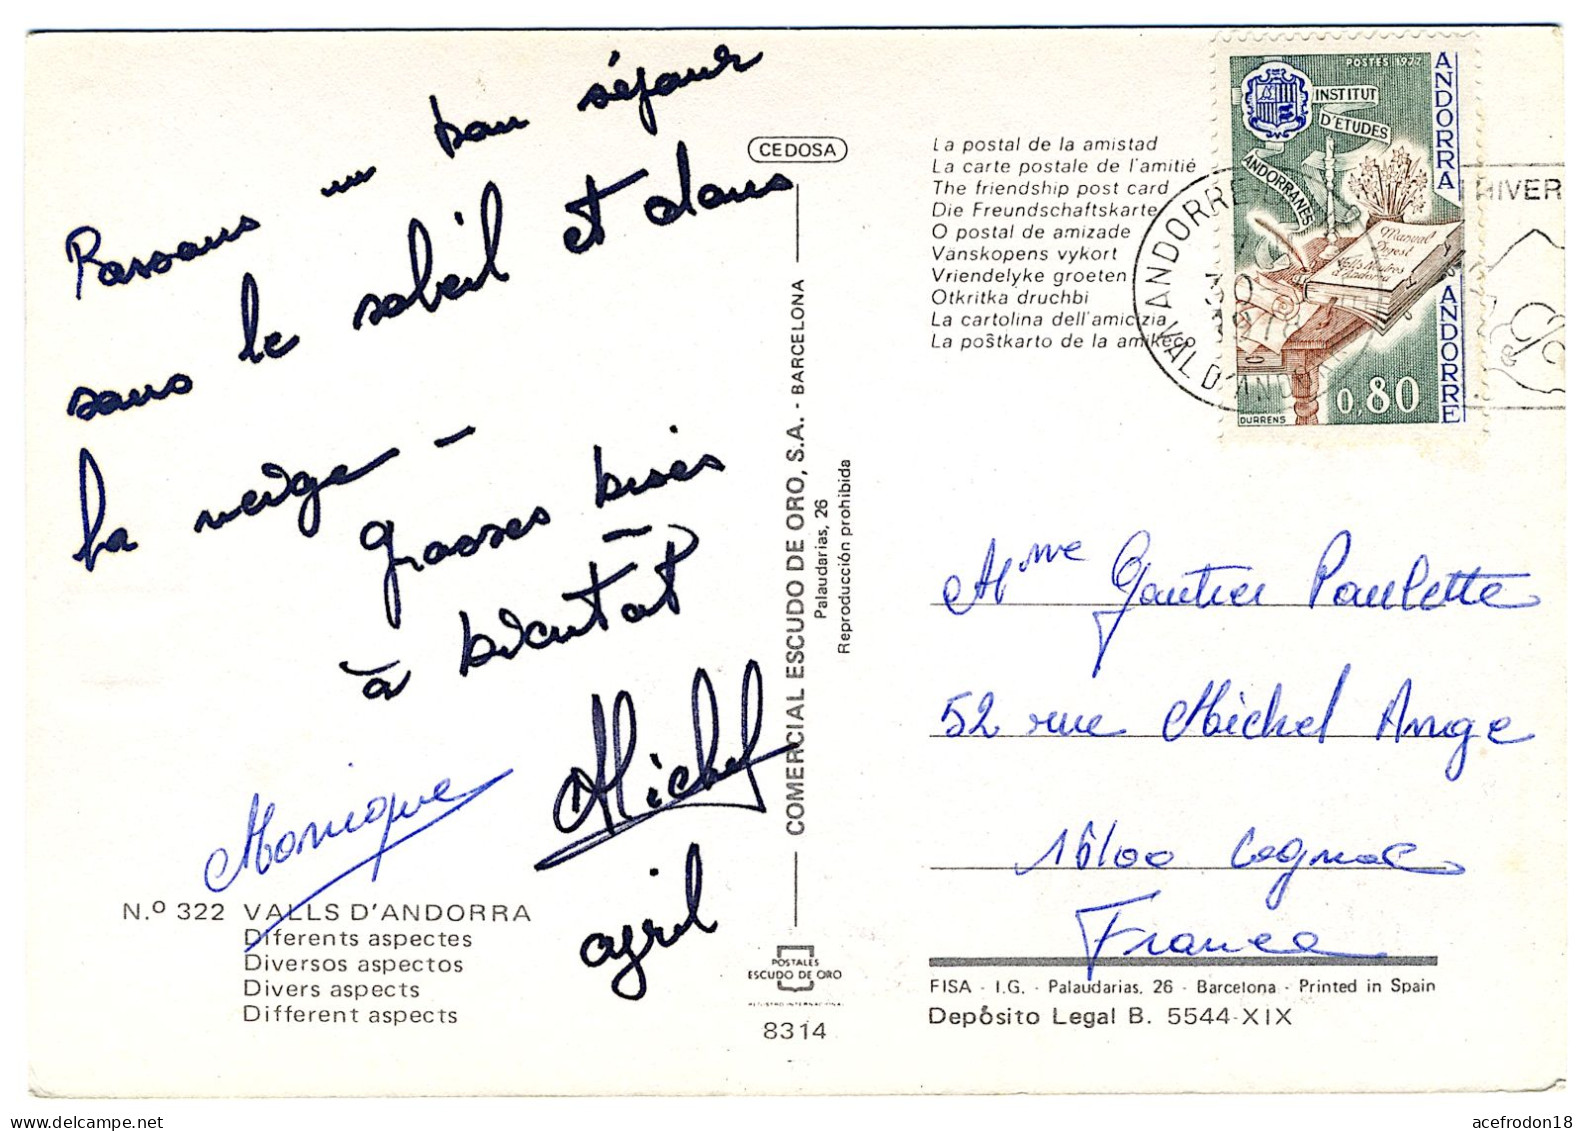 Passons un bon séjour
sous le soleil et dans
la neige -
grosses bises
à bientôt
Michel
Monique
april
N.º 322 VALLS D'ANDORRA
Diferents aspectes
Diversos aspectos
Divers aspects
Different aspects
CEDOSA
COMERCIAL ESCUDO DE ORO, S.A. - BARCELONA
Palaudarias, 26
Reproducción prohibida
POSTALES
ESCUDO DE ORO
8314
La postal de la amistad
La carte postale de l'amitié
The friendship post card
Die Freundschaftskarte
O postal de amizade
Vänskopens vykort
Vriendelyke groeten
Otkritka druchbi
La cartolina dell'amicizia
La poŝtkarto de la amikeco
POSTES 1977
INSTITUT
D'ETUDES
ANDORRANES
Manual
Digest
ANDORRA
ANDORRE
0,80
DURRENS
ANDORRE
30
1978
VAL D'ANDORRE
HIVER
Mme Gautier Paulette
52 rue Michel Ange
16100 Cognac
France
FISA - I.G. - Palaudarias, 26 - Barcelona - Printed in Spain
Depósito Legal B. 5544-XIX
acefrodon18